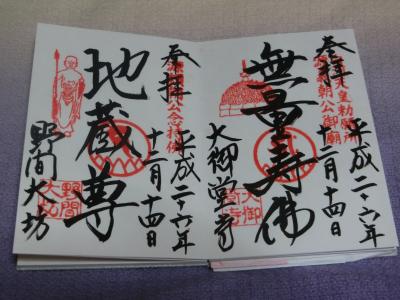 奉拝
天皇勅願所
朝公御廟
平成二六年
十二月十四日
無量寿佛
大御堂寺
奉拝
公念持佛
平成二六年
十二月十四日
地蔵尊
野間大坊
野間大坊